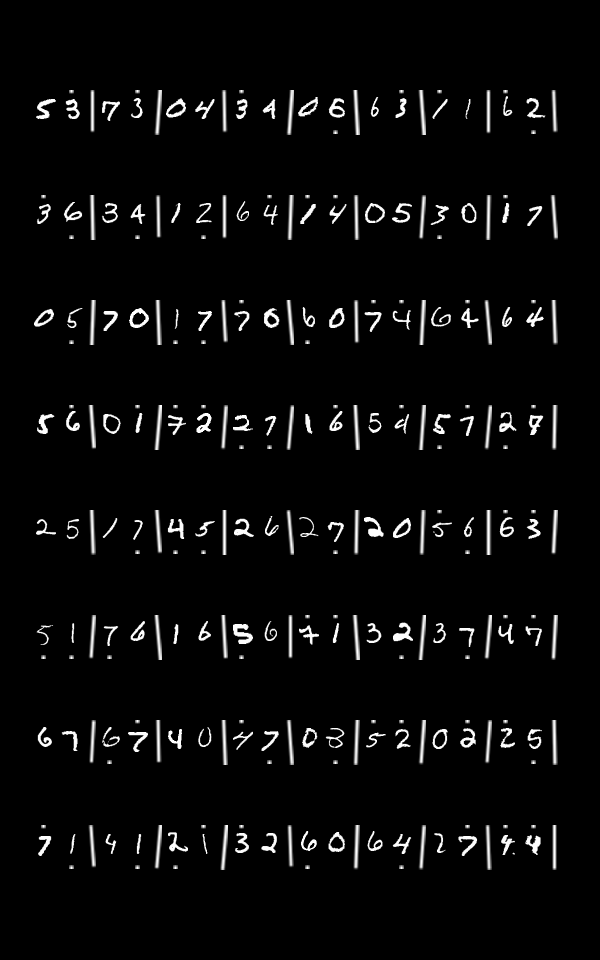 5 3 | 7 3 | 0 4 | 3 4 | 0 6 | 6 3 | 1 1 | 6 2 |
3 6 | 3 4 | 1 2 | 6 4 | 1 4 | 0 5 | 3 0 | 1 7 |
0 5 | 7 0 | 1 7 | 7 0 | 6 0 | 7 4 | 6 4 | 6 4 |
5 6 | 0 1 | 7 2 | 2 7 | 1 6 | 5 4 | 5 7 | 2 7 |
2 5 | 1 7 | 4 5 | 2 6 | 2 7 | 2 0 | 5 6 | 6 3 |
5 1 | 7 6 | 1 6 | 5 6 | 7 1 | 3 2 | 3 7 | 4 7 |
6 7 | 6 7 | 4 0 | 4 7 | 0 3 | 5 2 | 0 2 | 2 5 |
7 1 | 4 1 | 2 1 | 3 2 | 6 0 | 6 4 | 2 7 | 4 4 |